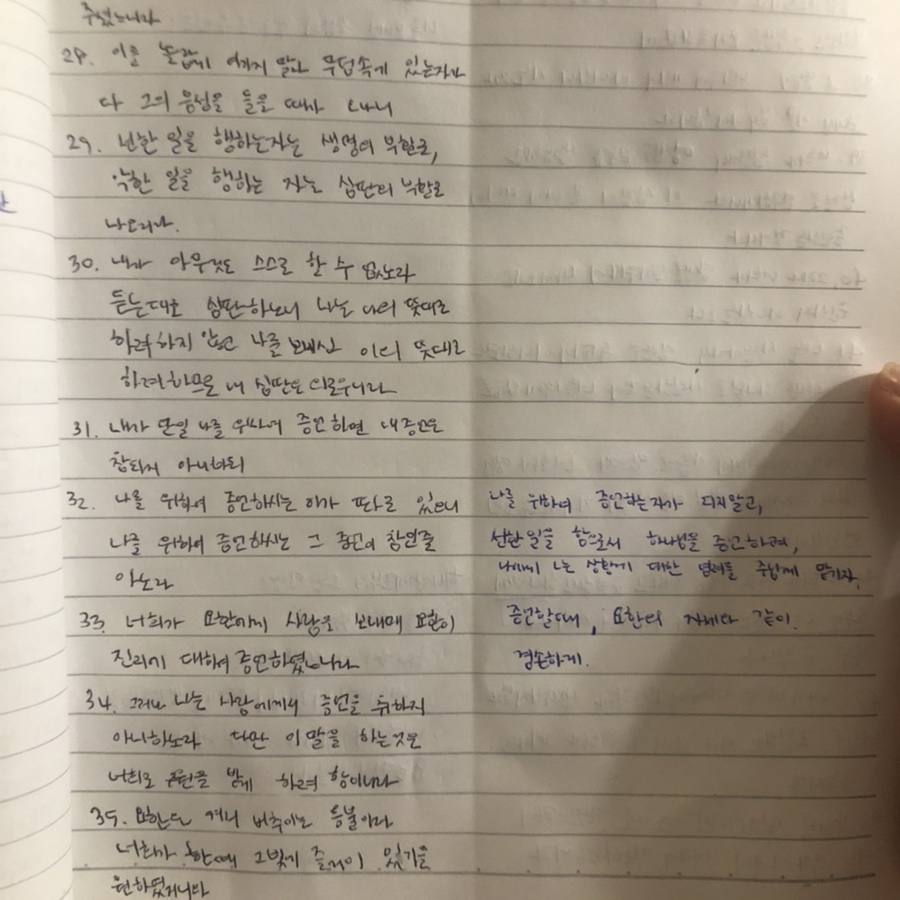 주셨느니라
28. 이를 놀랍게 여기지 말라 무덤속에 있는자가
다 그의 음성을 들을 때가 오나니
29. 선한 일을 행하는자는 생명의 부활로,
악한 일을 행하는 자는 심판의 부활로
나오리라.
30. 내가 아무것도 스스로 할 수 없노라
듣는대로 심판하노니 나는 나의 뜻대로
하려하지 않고 나를 보내신 이의 뜻대로
하려하므로 내 심판은 의로우니라
31. 내가 만일 나를 위하여 증언하면 내증언은
참되지 아니하되
32. 나를 위하여 증언하시는 이가 따로 있으니
나를 위하여 증언하시는 그 증언이 참인줄
아노라
33. 너희가 요한에게 사람을 보내매 요한이
진리에 대하여 증언하였느니라
34. 그러나 나는 사람에게서 증언을 취하지
아니하노라 다만 이 말을 하는것은
너희로 구원을 받게 하려 함이니라
35. 요한은 켜서 비추이는 등불이라
너희가 한때 그빛에 즐거이 있기를
원하였거니와
나를 위하여 증언하는자가 되지말고,
선한일을 함으로서 하나님을 증언하려,
나에게 오는 상황에 대한 염려를 주님께 맡기자.
증언할때에, 요한의 자세와 같이.
겸손하게.